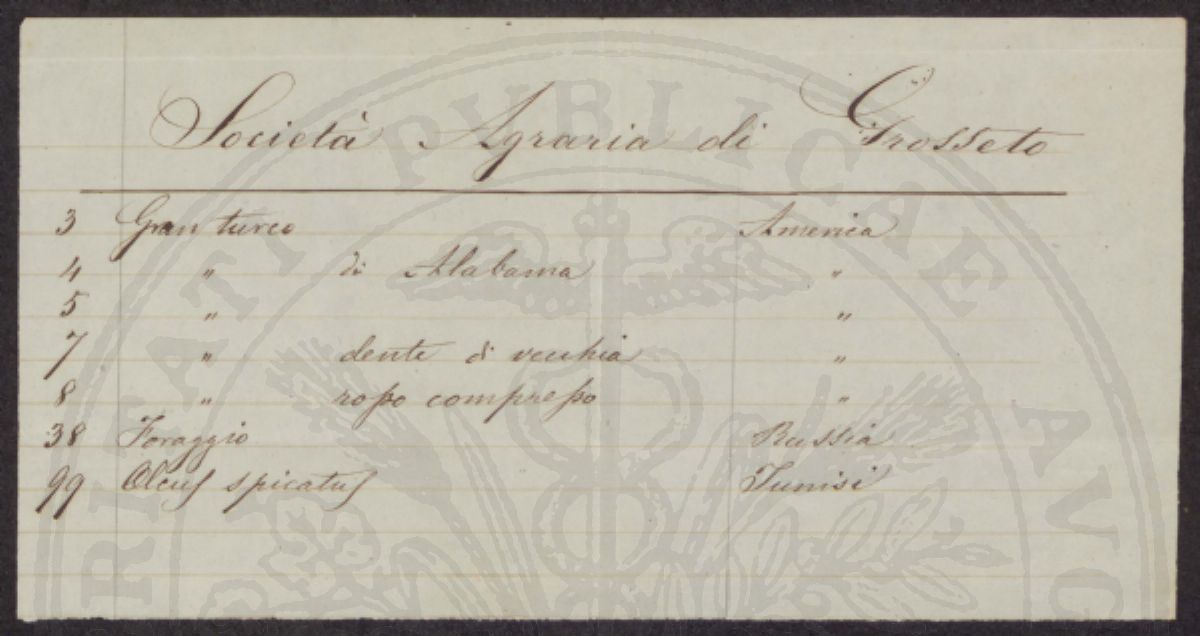 Società Agraria di Grosseto
3 Gran turco America
4 " di Alabama "
5 " "
7 " dente di vecchia "
8 " rosso compresso "
38 Foraggio Russia
99 Olcus spicatus Tunisi
PRIVATI PUBLICAE AUG